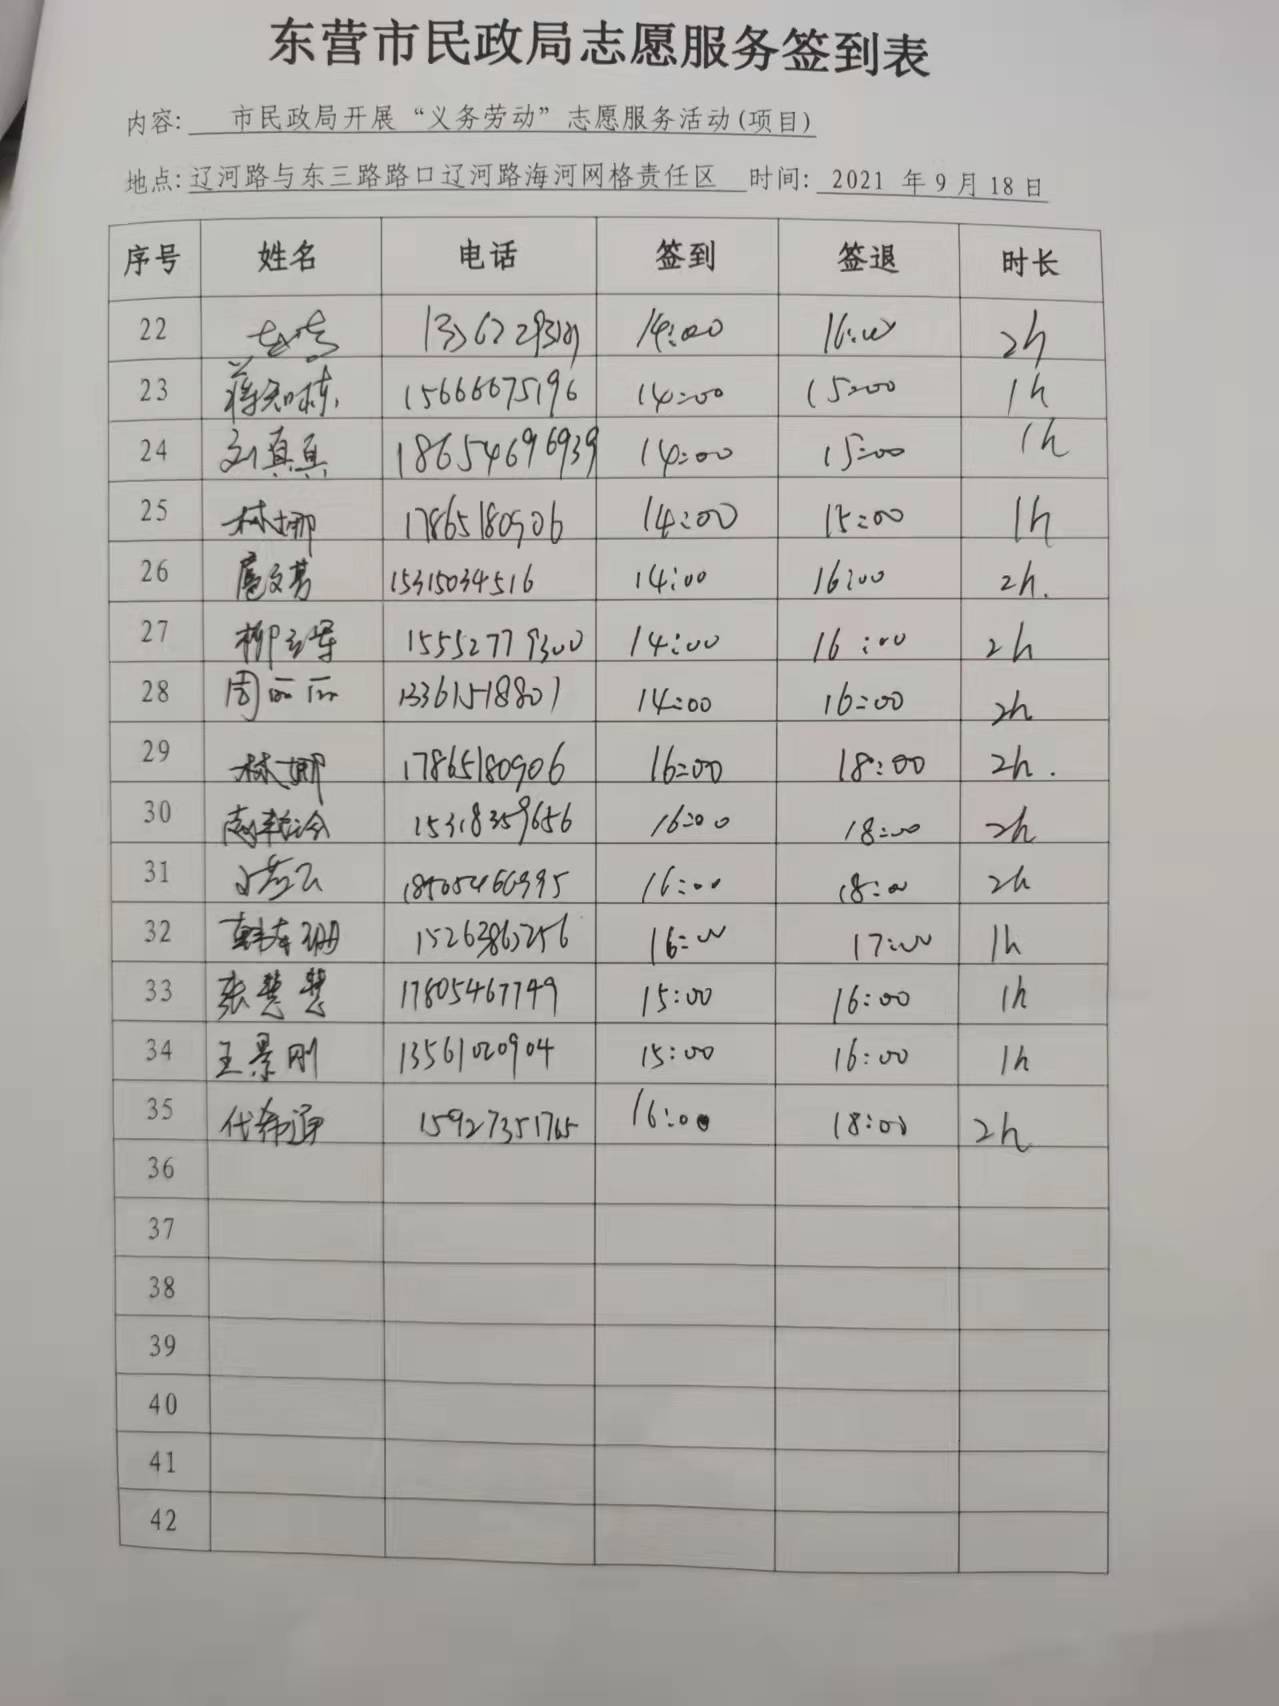 东营市民政局志愿服务签到表
内容: 市民政局开展“义务劳动”志愿服务活动(项目)
地点: 辽河路与东三路路口辽河路海河网格责任区 时间: 2021 年 9 月 18 日
序号 姓名 电话 签到 签退 时长
22 14:00 16:00 2h
23 蒋知栋 15666675196 14:00 15:00 1h
24 刘真真 18654696939 14:00 15:00 1h
25 林娜 17865180906 14:00 15:00 1h
26 15315034516 14:00 16:00 2h.
27 15552779300 14:00 16:00 2h
28 周丽丽 13361518801 14:00 16:00 2h
29 林娜 17865180906 16:00 18:00 2h.
30 15318359656 16:00 18:00 2h
31 16:00 18:00 2h
32 16:00 17:00 1h
33 张慧慧 17805467749 15:00 16:00 1h
34 王景刚 13561020904 15:00 16:00 1h
35 15927351765 16:00 18:00 2h
36
37
38
39
40
41
42